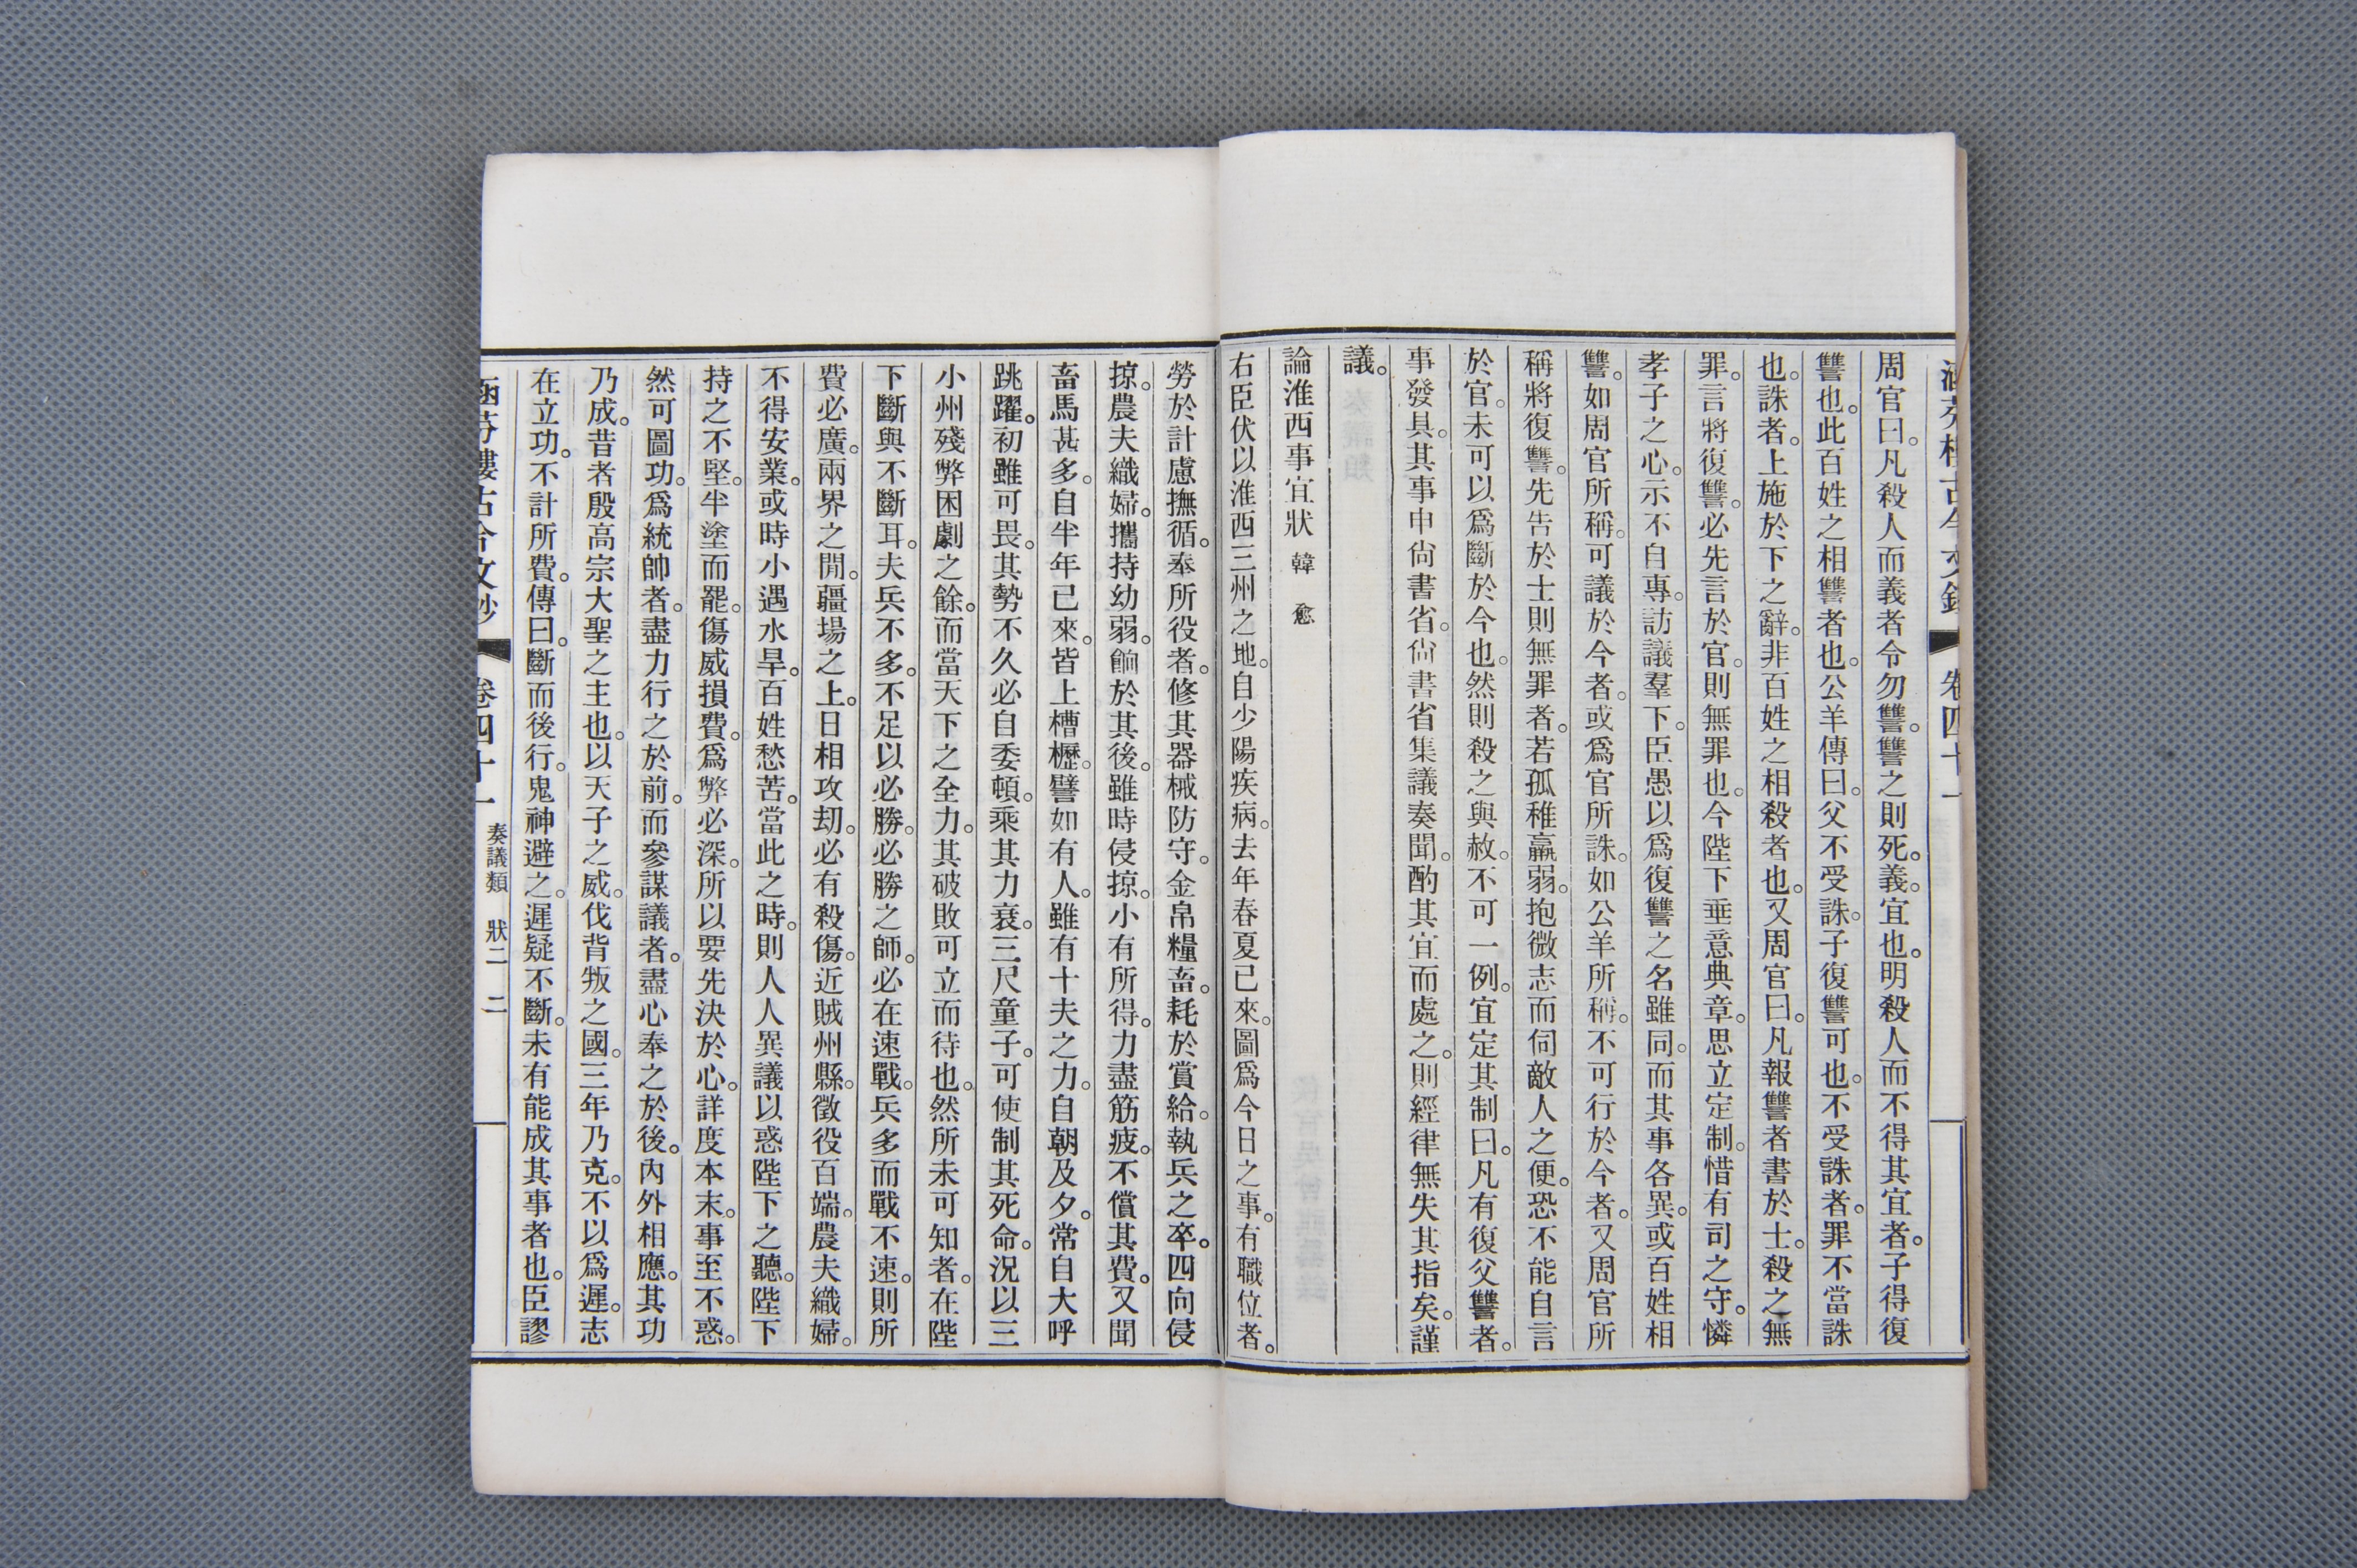 涵芬樓古今文鈔 卷四十一
周官曰。凡殺人而義者令勿讐。讐之則死。義。宜也。明殺人而不得其宜者。子得復
讐也。此百姓之相讐者也。公羊傳曰。父不受誅。子復讐可也。不受誅者。罪不當誅
也。誅者。上施於下之辭。非百姓之相殺者也。又周官曰。凡報讐者書於士。殺之無
罪。言將復讐。必先言於官。則無罪也。今陛下垂意典章。思立定制。惜有司之守。憐
孝子之心。示不自專。訪議羣下。臣愚以爲復讐之名雖同。而其事各異。或百姓相
讐。如周官所稱。可議於今者。或爲官所誅。如公羊所稱。不可行於今者。又周官所
稱將復讐。先告於士則無罪者。若孤稚羸弱。抱微志而伺敵人之便。恐不能自言
於官。未可以爲斷於今也。然則殺之與赦。不可一例。宜定其制曰。凡有復父讐者。
事發具。其事申尙書省。尙書省集議奏聞。酌其宜而處之。則經律無失其指矣。謹
議。
論淮西事宜狀 韓 愈
右臣伏以淮西三州之地。自少陽疾病。去年春夏已來。圖爲今日之事。有職位者。
勞於計慮撫循。奉所役者。修其器械防守。金帛糧畜。耗於賞給。執兵之卒。四向侵
掠。農夫織婦。攜持幼弱。餉於其後。雖時侵掠。小有所得。力盡筋疲。不償其費。又聞
畜馬甚多。自半年已來。皆上槽櫪。譬如有人。雖有十夫之力。自朝及夕。常自大呼
跳躍。初雖可畏。其勢不久必自委頓。乘其力衰。三尺童子。可使制其死命。況以三
小州殘弊困劇之餘。而當天下之全力。其破敗可立而待也。然所未可知者。在陛
下斷與不斷耳。夫兵不多。不足以必勝。必勝之師。必在速戰。兵多而戰不速。則所
費必廣。兩界之閒。疆場之上。日相攻刼。必有殺傷。近賊州縣。徵役百端。農夫織婦。
不得安業。或時小遇水旱。百姓愁苦。當此之時。則人人異議以惑陛下之聽。陛下
持之不堅。半塗而罷。傷威損費。爲弊必深。所以要先決於心。詳度本末。事至不惑。
然可圖功。爲統帥者。盡力行之於前。而參謀議者。盡心奉之於後。內外相應。其功
乃成。昔者殷高宗大聖之主也。以天子之威。伐背叛之國。三年乃克。不以爲遲。志
在立功。不計所費。傳曰。斷而後行。鬼神避之。遲疑不斷。未有能成其事者也。臣謬
涵芬樓古今文鈔 卷四十一 奏議類 狀二 二